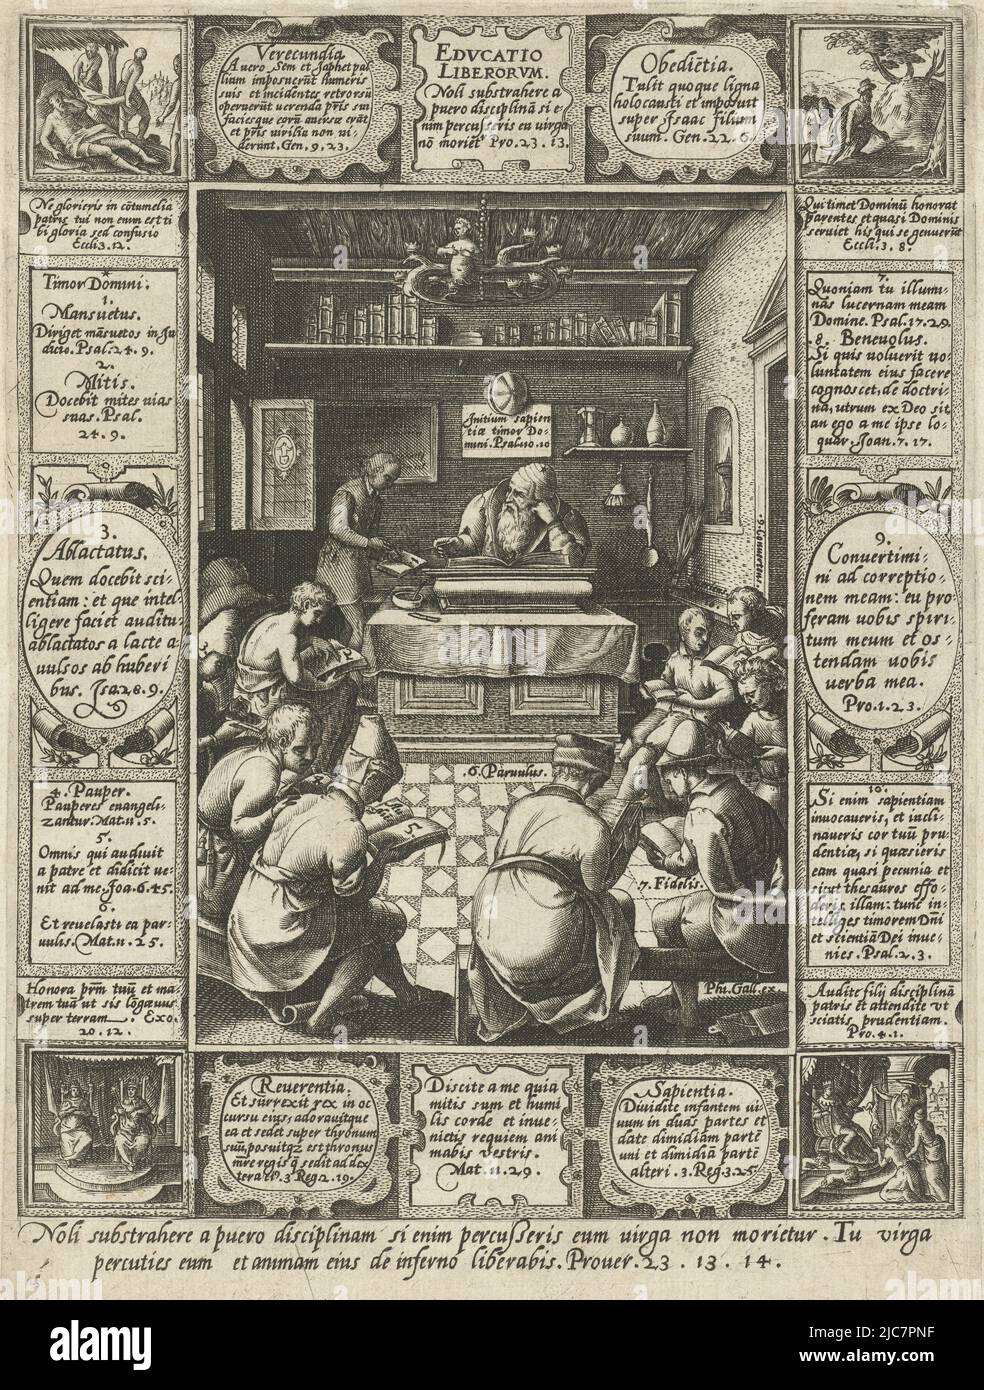 Verecundia
At vero Sem et Japhet pal
lium imposuerūt humeris
suis et incidentes retrorsū
operuerūt verenda pris sui
faciesque eorū aversæ erāt
et pris virilia non vi-
derunt. Gen. 9. 23.
EDVCATIO
LIBERORVM.
Noli substrahere a
puero disciplinā si e
nim percusseris eū virga
nō moriet Pro. 23. 13.
Obediētia.
Tulit quoque ligna
holocausti et imposuit
super Isaac filium
suum. Gen. 22. 6.
Ne glorieris in cōtumelia
patris tui non enim est ti
bi gloria sed confusio
Eccli 3. 12.
Qui timet Dominū honorat
parentes et quasi Dominis
serviet his qui se genuerūt
Eccli. 3. 8.
Timor Domini.
1.
Mansuetus.
Diriget māsuetos in Ju
dicio. Psal. 24. 9.
2.
Mitis.
Docebit mites vias
suas. Psal.
24. 9.
7.
Quoniam tu illumi-
nās lucernam meam
Domine. Psal. 17. 29.
8. Beneuolus.
Si quis voluerit vo-
luntatem eius facere
cognoscet, de doctri-
na, utrum ex Deo sit
an ego a me ipse lo-
quar. Joan. 7. 17.
Initium sapien
tiæ timor Do-
mini. Psal. 110. 10
3.
Ablactatus.
Quem docebit sci-
entiam: et que intel-
ligere faciet auditū
ablactatos a lacte a
vulsos ab huberi
bus. Isa 28. 9.
9.
Convertimi-
ni ad correptio-
nem meam: eu pro
feram vobis spiri-
tum meum et os-
tendam vobis
verba mea.
Pro. 1. 23.
6. Parvulus.
7. Fidelis.
4. Pauper.
Pauperes euangeli-
zantur. Mat. 11. 5.
5.
Omnis qui audivit
a patre et didicit ve-
nit ad me. Joa. 6. 45.
6.
Et revelasti ea par-
vulis. Mat. 11. 25.
10.
Si enim sapientiam
invocaveris, et incli-
naveris cor tuū pru-
dentiæ, si quæsieris
eam quasi pecunia et
sicut thesauros effo-
deris, illam: tunc in-
telliges timorem Dni
et scientiā Dei inve-
nies. Psal. 2. 3.
Phi. Gall. ex.
Honora prm tuū et ma-
trem tuā ut sis lōgævus
super terram. Exo.
20. 12.
Audite filij disciplinā
patris et attendite vt
sciatis prudentiam.
Pro. 4. 1.
Reuerentia.
Et surrexit rex in oc
cursu eius, adoravitque
ea et sedet super thronum
suū, positq₃ est thronus
mre regis q̄ sedit ad dex
tera ei9. 3 Reg 2. 19.
Discite a me quia
mitis sum et humi
lis corde et inve-
nietis requiem ani
mabis vestris.
Mat. 11. 29.
Sapientia.
Dividite infantem vi
vum in duas partes et
date dimidiam partē
uni et dimidiā partē
alteri. 3. Reg. 3. 25.
Noli substrahere a puero disciplinam si enim percusseris eum virga non morietur. Tu virga
percuties eum et animam eius de inferno liberabis. Prouer. 23. 13. 14.
alamy
Image ID: 2JC7PNF
www.alamy.com